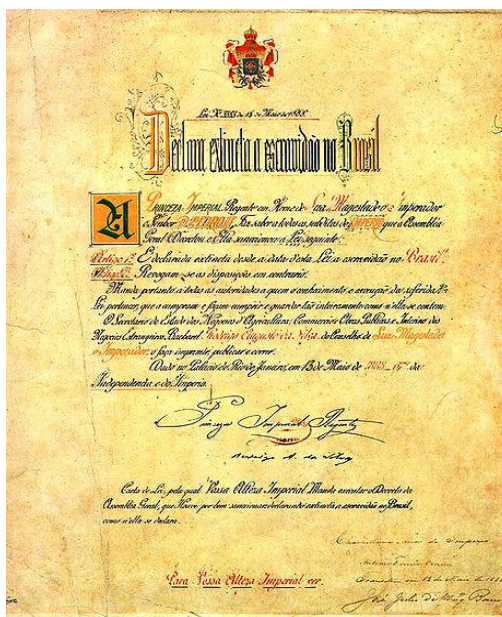 Lei Nº 3353 de 13 de Maio de 1888.
Declara extincta a escravidão no Brasil
A PRINCEZA IMPERIAL, Regente em Nome de Sua Magestade o Imperador
o Senhor D. PEDRO II, Faz saber a todos os subditos do IMPERIO que a Assembléa
Geral Decretou e Ella sanccionou a Lei seguinte:
Artigo 1º É declarada extincta desde a data d'esta Lei a escravidão no Brasil
Artigo 2º Revogam-se as disposições em contrario.
Manda portanto a todas as autoridades a quem o conhecimento e execução da referida
Lei pertencer, que a cumpram e façam cumprir e guardar tão inteiramente como n'ella se contem.
O Secretario de Estado dos Negocios d'Agricultura, Commercio e Obras Publicas e Interino dos
Negocios Estrangeiros, Bacharel Rodrigo Augusto da Silva, do Conselho de Sua Magestade
o Imperador, o faça imprimir, publicar e correr.
Dado no Palacio do Rio de Janeiro, em 13 de Maio de 1888 - 67º da
Independencia e do Imperio.
Princeza Imperial Regente
Rodrigo A. da Silva
Carta de Lei, pela qual Vossa Alteza Imperial Manda executar o Decreto da
Assembléa Geral, que Houve por bem sanccionar declarando extincta a escravidão no Brasil,
como n'ella se declara.
Para Vossa Alteza Imperial ver.